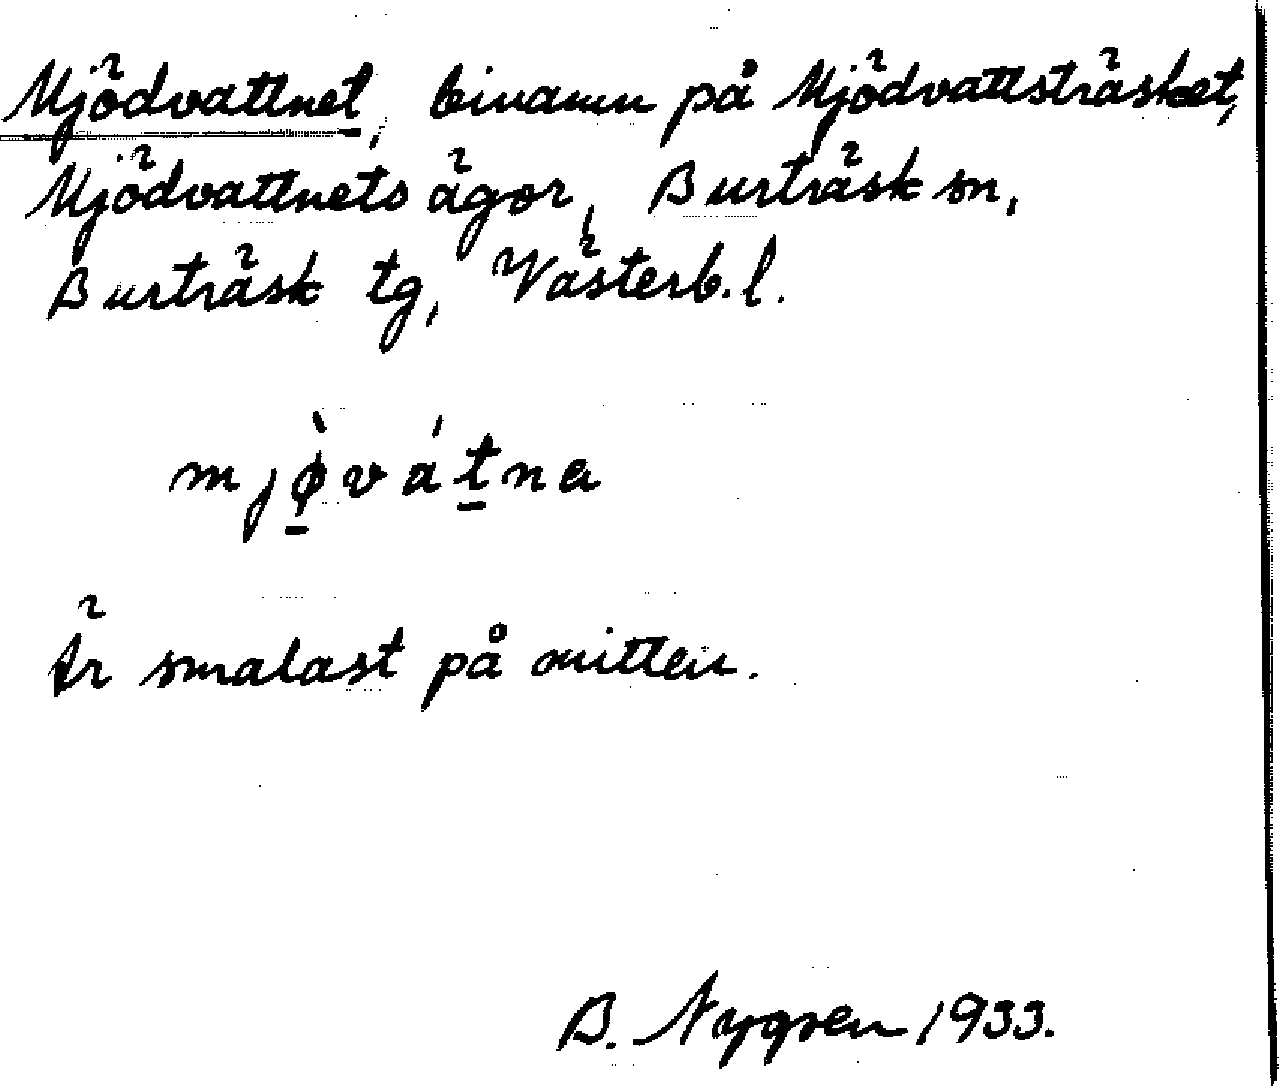 Mjödvattnet, binamn på Mjödvattsträsket,
Mjödvattnets ägor, Burträsk sn,
Burträsk tg, Västerb. l.
mjø̱̀váṯna
Är smalast på mitten.
B. Nygren 1933.